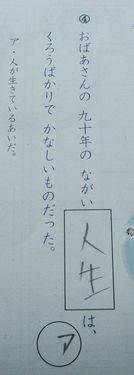 ④ おばあさんの 九十年の ながい 人生 は、
くろうばかりで かなしいものだった。
ア
ア・人が生きているあいだ。